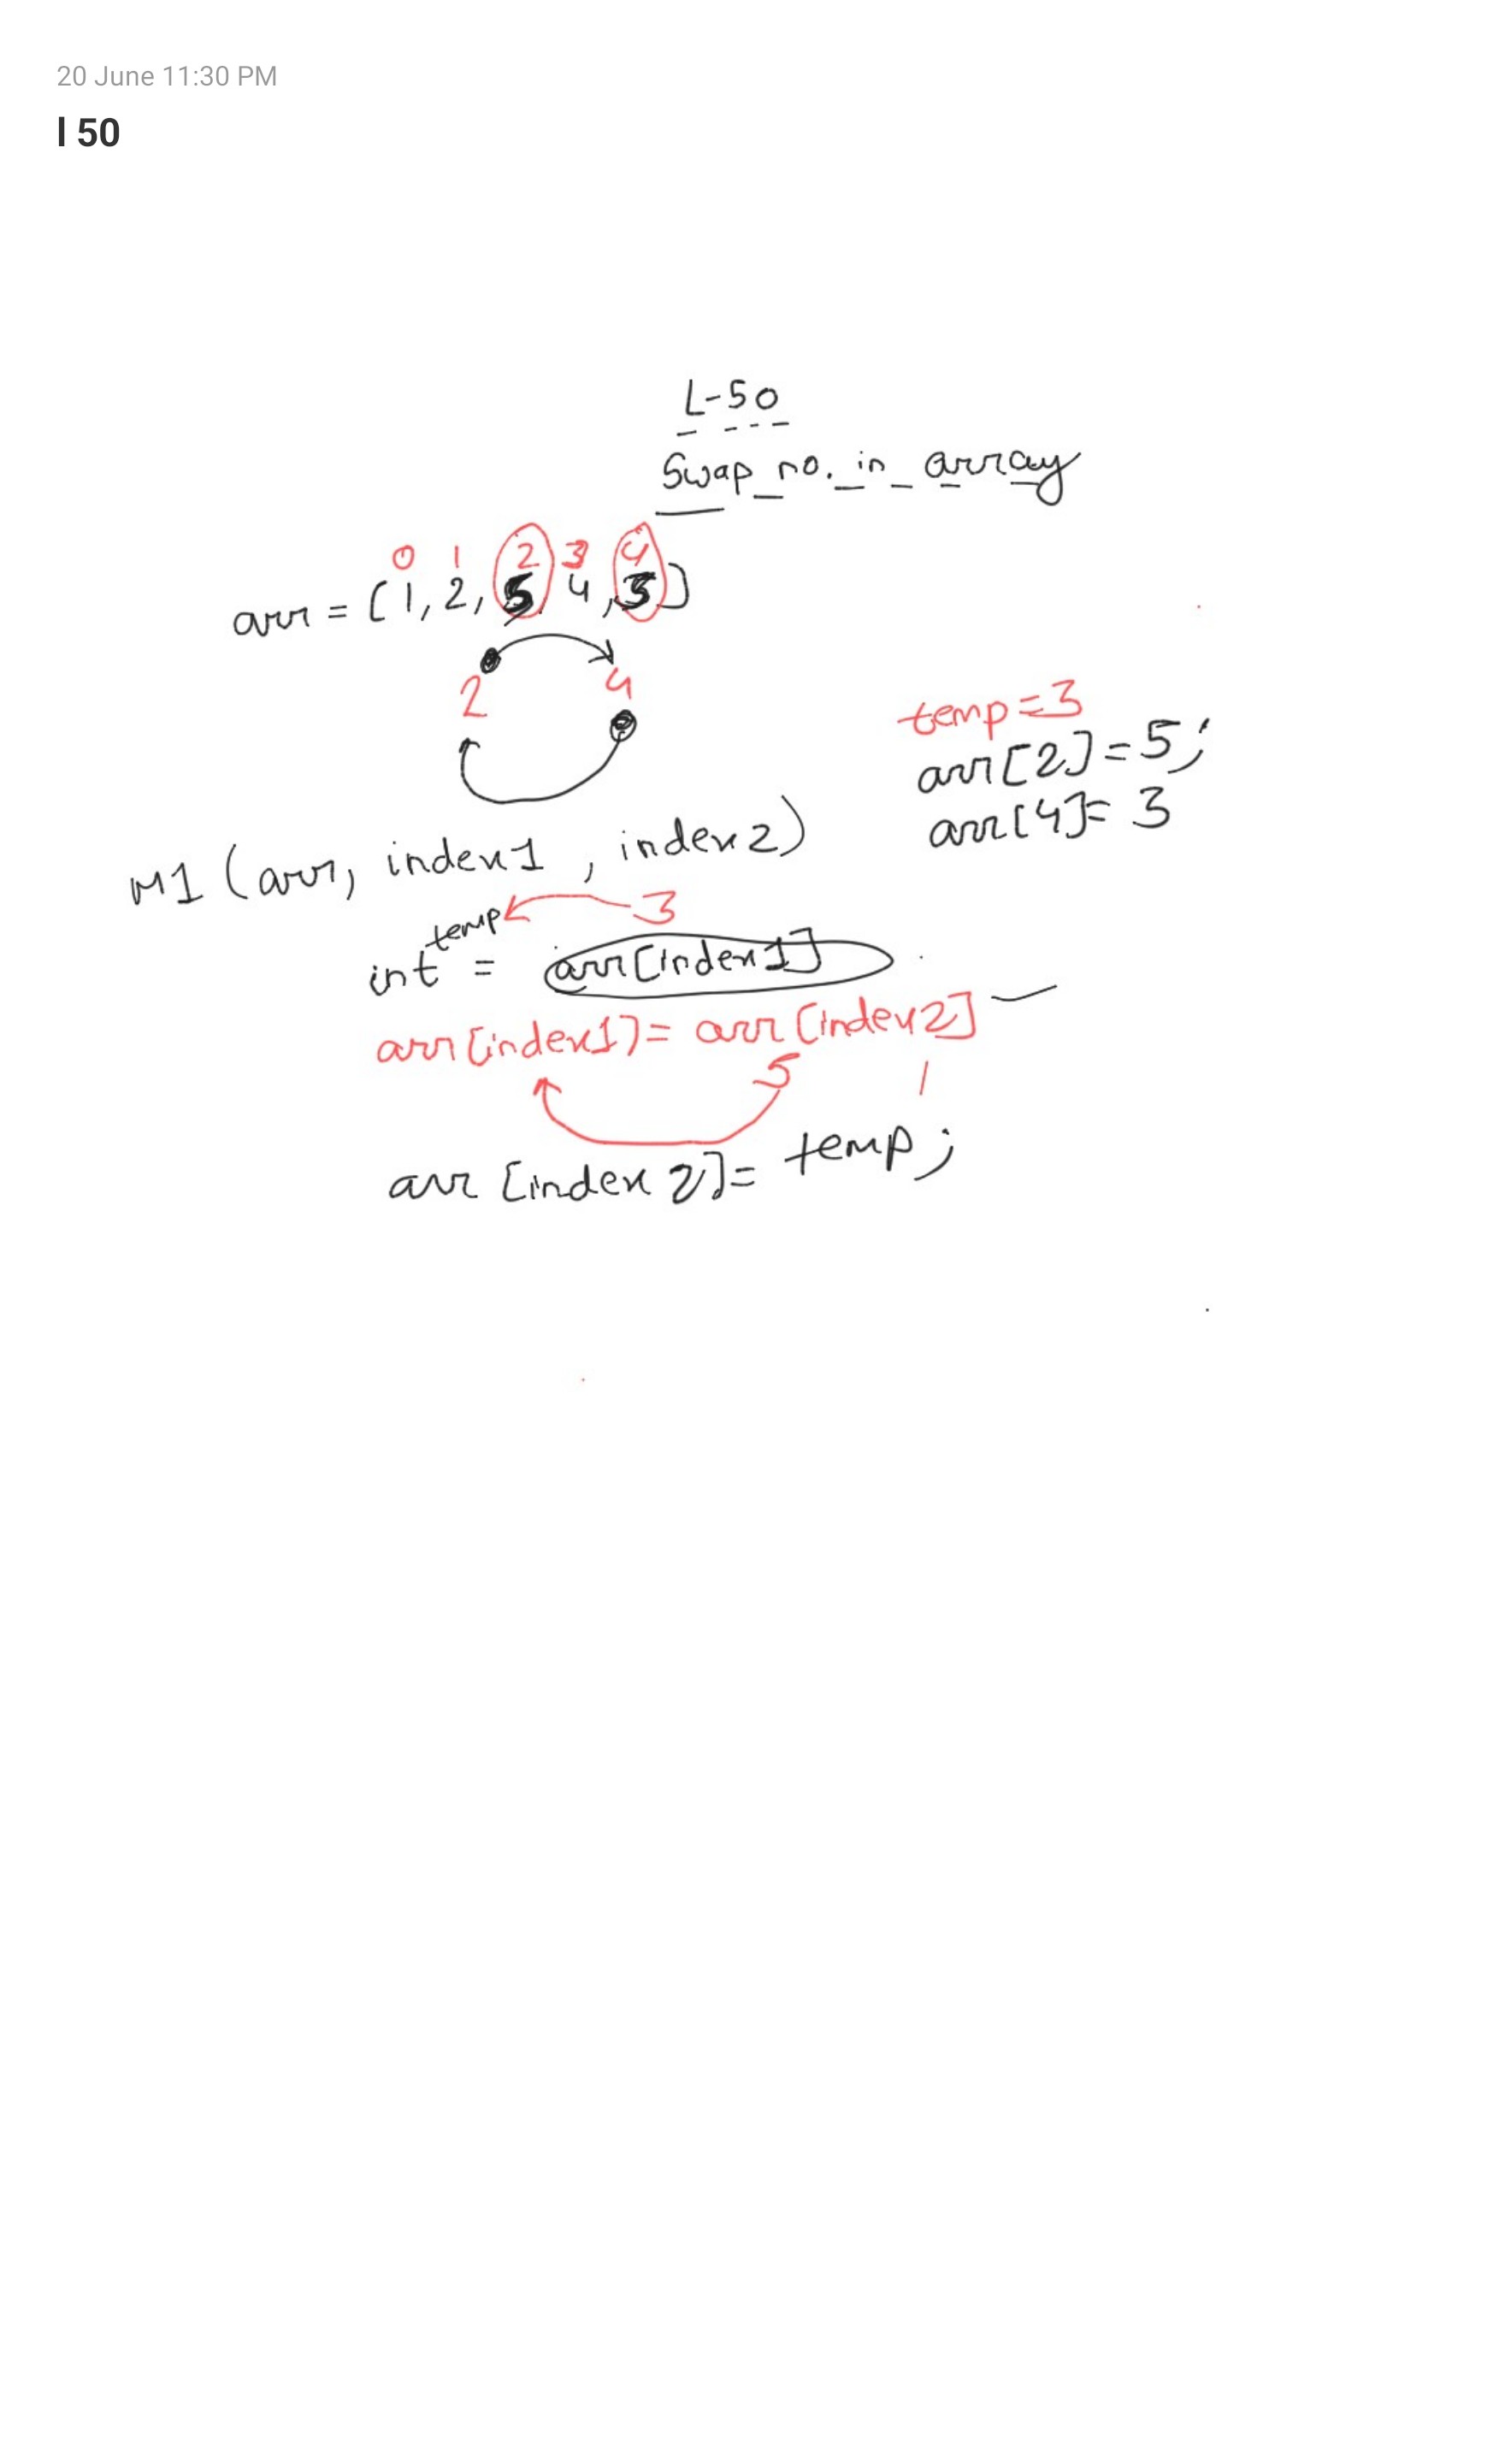 20 June 11:30 PM
l 50
L-50
Swap no. in array
0 1 2 3 4
arr = [1, 2, 5, 4, 3]
2 4
temp=3
arr[2]=5;
arr[4]= 3
M1 (arr, index1 , index2)
temp 3
int = arr[index1]
arr[index1]= arr[index2]
5
arr [index 2]= temp;